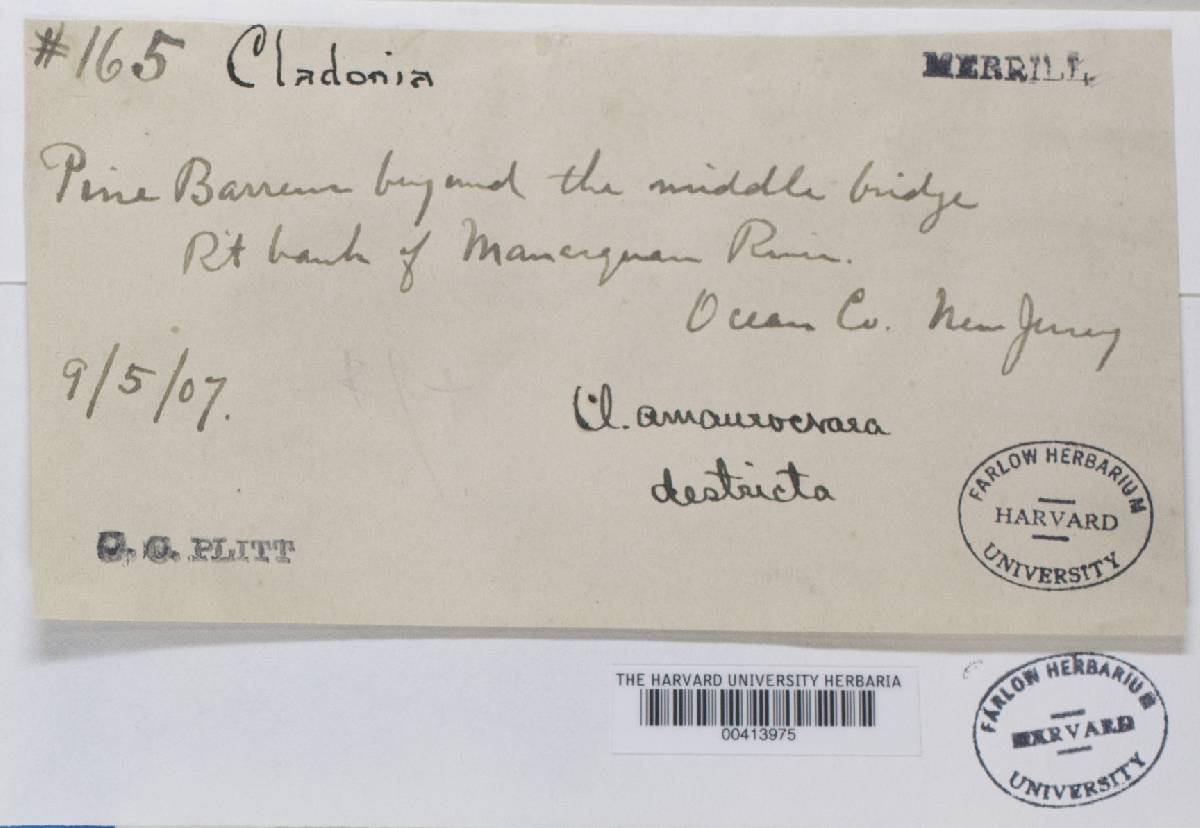 #165 Cladonia
MERRILL
Pine Barrens beyond the middle bridge
Rt bank of Manasquan River.
Ocean Co. New Jersey
9/5/07.
Cl. amaurocraea
destricta
C. C. PLITT
FARLOW HERBARIUM
HARVARD
UNIVERSITY
THE HARVARD UNIVERSITY HERBARIA
00413975
FARLOW HERBARIUM
HARVARD
UNIVERSITY